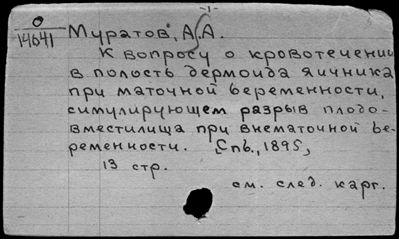 -1-
0
14641 Муратов, А.А.
К вопросу о кровотечении
в полость дермоида яичника
при маточной беременности,
симулирующем разрыв плодо-
вместилища при внематочной бе-
ременности. Спб., 1895,
13 стр.
см. след. карт.